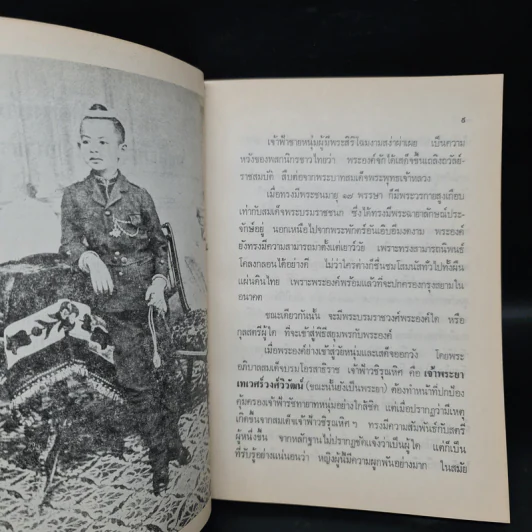 ๕
เจ้าฟ้าชายหนุ่มผู้มีพระสิริโฉมงามสง่าผ่าเผย เป็นความ
หวังของพสกนิกรชาวไทยว่า พระองค์จักได้เสด็จขึ้นเถลิงถวัลย์-
ราชสมบัติ สืบต่อจากพระบาทสมเด็จพระพุทธเจ้าหลวง
เมื่อทรงมีพระชนมายุ ๑๗ พรรษา ก็มีพระวรกายสูงเกือบ
เท่ากับสมเด็จพระบรมราชชนก ซึ่งได้ทรงมีพระฉายาลักษณ์ประ-
จักษ์อยู่ นอกเหนือไปจากพระพักตร์อันอิบอิ่มงดงาม พระองค์
ยังทรงมีความสามารถมาตั้งแต่เยาว์วัย เพราะทรงสามารถนิพนธ์
โคลงกลอนได้อย่างดี ไม่ว่าใครต่างก็ชื่นชมโสมนัสทั่วไปทั้งผืน
แผ่นดินไทย เพราะพระองค์พร้อมแล้วที่จะปกครองกรุงสยามใน
อนาคต
ขณะเดียวกันนั้น จะมีพระบรมราชวงศ์พระองค์ใด หรือ
กุลสตรีผู้ใด ที่จะเข้าสู่พิธีสยุมพรกับพระองค์
เมื่อพระองค์ย่างเข้าสู่วัยหนุ่มและเสด็จออกวัง โดยพระ
อภิบาลสมเด็จบรมโอรสาธิราช เจ้าฟ้าวชิรุณหิศ คือ เจ้าพระยา
เทเวศร์วงศ์วิวัฒน์ (ขณะนั้นยังเป็นพระยา) ต้องทำหน้าที่ปกป้อง
คุ้มครองเจ้าฟ้ารัชทายาทหนุ่มอย่างใกล้ชิด แต่เมื่อปรากฏว่ามีเหตุ
เกิดขึ้นจากสมเด็จเจ้าฟ้าวชิรุณหิศฯ ทรงมีความสัมพันธ์กับสตรี
ผู้หนึ่งขึ้น จากหลักฐานไม่ปรากฏชัดแจ้งว่าเป็นผู้ใด แต่ก็เป็น
ที่รับรู้อย่างแน่นอนว่า หญิงผู้นี้มีความผูกพันอย่างมาก ในสมัย